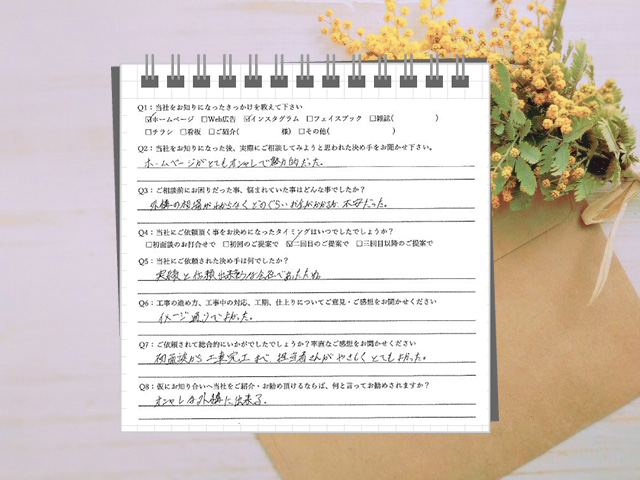 Q1：当社をお知りになったきっかけを教えて下さい
☑ホームページ　□Web広告　☑インスタグラム　□フェイスブック　□雑誌(　　　　)
□チラシ　□看板　□ご紹介(　　　　　様)　□その他(　　　　　　)
Q2：当社をお知りになった後、実際にご相談してみようと思われた決め手をお聞かせ下さい。
ホームページがとてもオシャレで魅力的だった。
Q3：ご相談前にお困りだった事、悩まれていた事はどんな事でしたか？
外構の相場がわからなくどのくらいお金がかかるか不安だった。
Q4：当社にご依頼頂く事をお決めになったタイミングはいつでしたでしょうか？
□初面談のお打合せで　□初回のご提案で　☑二回目のご提案で　□三回目以降のご提案で
Q5：当社にご依頼された決め手は何でしたか？
実績と信頼出来る会社であったため
Q6：工事の進め方、工事中の対応、工期、仕上りについてご意見・ご感想をお聞かせください
イメージ通りでよかった。
Q7：ご依頼されて総合的にいかがでしたでしょうか？率直なご感想をお聞かせください
初面談から工事完工まで、担当者さんがやさしくとてもよかった。
Q8：仮にお知り合いへ当社をご紹介・お勧め頂けるならば、何と言ってお勧めされますか？
オシャレな外構に出来る。